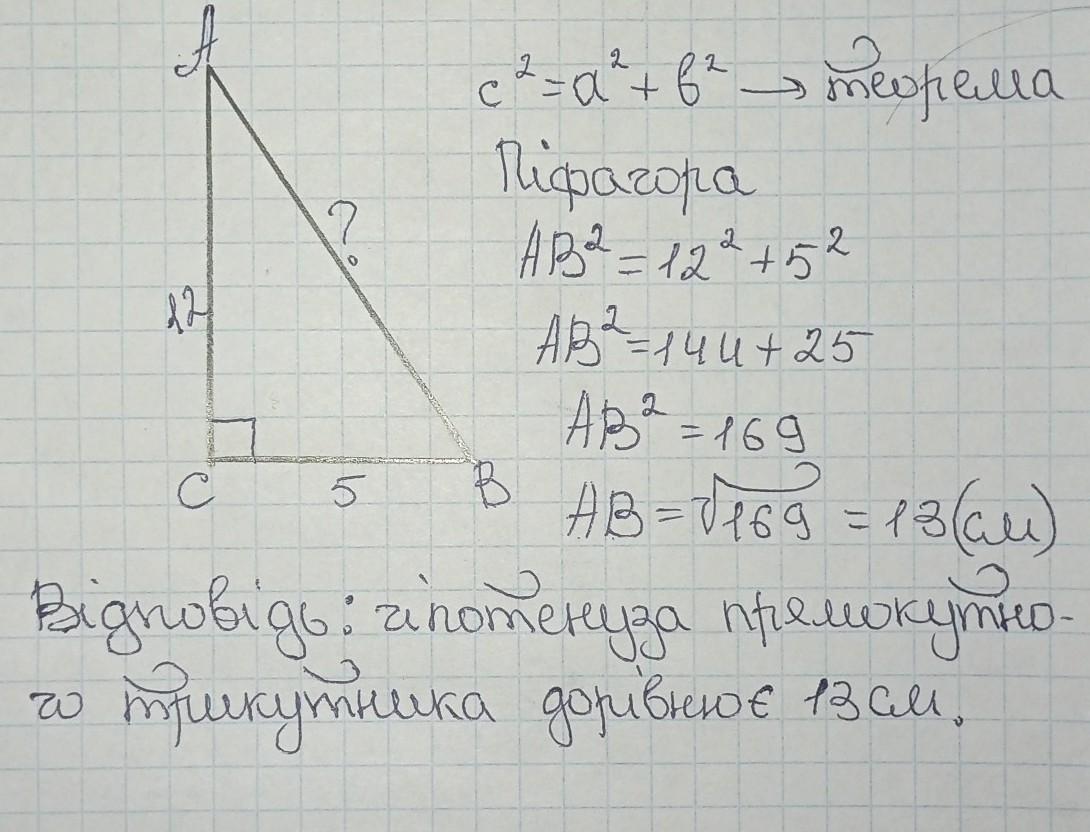 A
c² = a² + b² → теорема
Піфагора
?
AB² = 12² + 5²
12
AB² = 144 + 25
AB² = 169
C 5 B
AB = √169 = 13 (см)
Відповідь: гіпотенуза прямокутно-
го трикутника дорівнює 13 см.